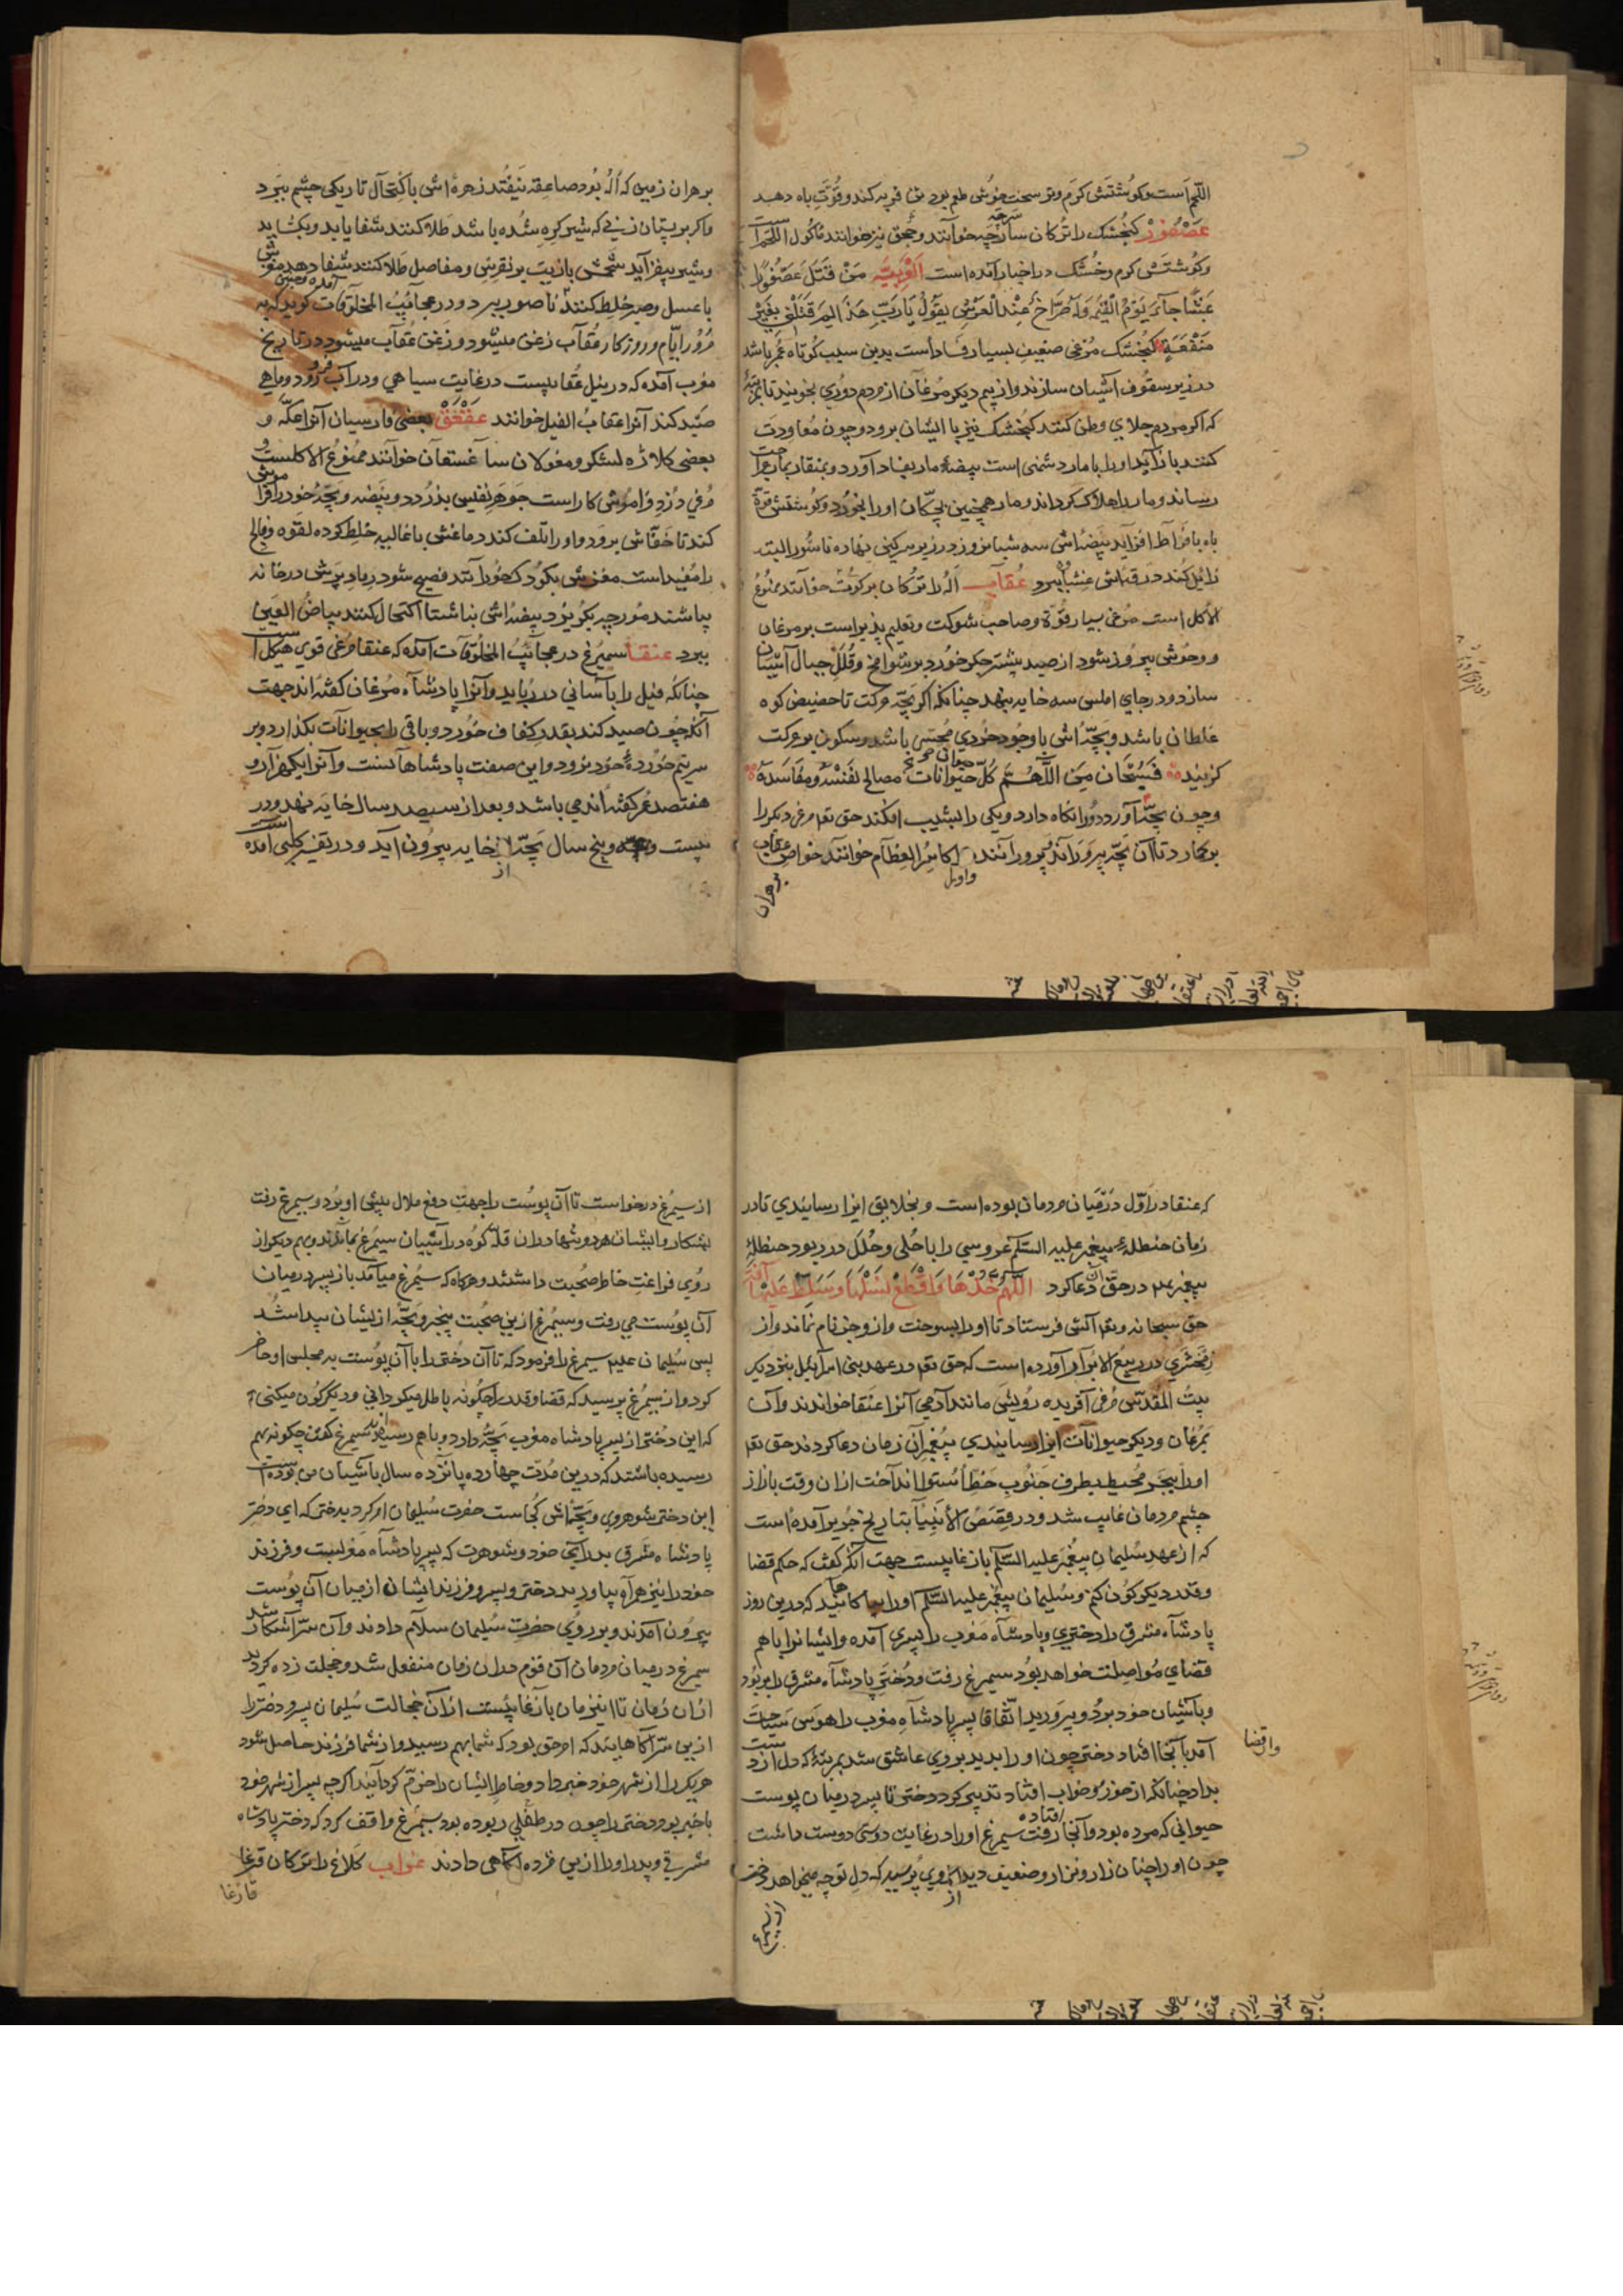 اللحم است و گوشتش گرم و تر سخت خوش طعم بود بدن فربه کند و قوت باه دهد
عصفور کنجشک را ترکان سارچه خوانند و جمجق نیز خوانند ماکول اللحم است
و گوشتش گرم و خشک در اخبار آمده است العربیه من قتل عصفورا
عبثا جاء یوم القیمه وله صراخ عند العرش یقول یا رب هذا لم قتلنی بغیر
منفعة کنجشک مرغی ضعیف بسیار فساد است بدین سبب کوتاه عمر باشد
در زیر سقوف آشیان سازند و از بیم دیگر مرغان از مردم دوری نجویند تا بمرتبۀ
که اگر مردم جلای وطن کنند کنجشک نیز با ایشان برود و چون معاودت
کنند باز آید او را با مار دشمنی است بیضۀ مار بفساد آورد و بمنقار بمار جراحت
رساند و مار را هلاک گرداند و مار همچنین بچکان او را بخورد و گوشتش قوة
باه بافراط افزاید بیضه اش سه شبانروز در زیر سرکین نهاده ناشور البته
زایل کند عقاب اله را ترکان برکوت خوانند ممنوع
الاکل است مرغی بسیار قوة و صاحب شوکت و تعلیم پذیر است بر مرغان
و وحوش پیروز شود از صید بیشتر جگر خورد بر شوامخ و قلل جبال آشیان
سازد و در جای املس سه خایه بنهد چنانکه اگر بچه حرکت تا حضیض کوه
غلطان باشد و بچه اش با وجود خردی محترس باشد و سکون بر حرکت
گزیند فسبحان من الهم کل حیوانات مصالح نفسه و مفاسده
و چون بچه آورد دو را نگاه دارد و یکی را بشیب افکند حق تع مرغ دیگر را
بر گمارد تا آن بچه را بپروراند کاسر العظام خوانند خواص عقاب
بر هران
بر هران زمین که اله بود صاعقه نیفتد زهره اش باکتحال تاریکی چشم ببرد
و اگر بر پستان زنی که شیر گره شده باشد طلا کنند شفا یابد و بگشاید
و شیر بیفزاید شحمش با زیت بر نقرس و مفاصل طلا کنند شفا دهد
با عسل و صبر خلط کنند ناصور ببرد و در عجائب المخلوقات گوید که به
مرور ایام و روزگار عقاب زغن میشود و زغن عقاب میشود در تاریخ
مغرب آمده که در نیل عقابیست در غایت سیاهی و در آب فرو رود و ماهی
صید کند آنرا عقاب الفیل خوانند عقعق بعضی فارسیان آنرا عکه و
بعضی کلاژه لشکر و مغولان ساغستغان خوانند ممنوع الاکلست
مرغی دزد و فراموش کار است جوهر نفیس بدزدد و بیضه و بچۀ خود را فراموش
کند تا خفاش برود و او را تلف کند دماغش با غالیه خلط کرده لقوه و فالج
را مفید است مغزش بکودک خورانند فصیح شود رماد پرش در خانه
بپاشند مورچه بگریزد بیضه اش ناشتا اکتحال کنند بیاض العین
ببرد عنقا سیمرغ در عجائب المخلوقات آمده که عنقا مرغی قوی هیکل است
چنانکه فیل را بآسانی در رباید و آنرا پادشاه مرغان گفته اند جهت
آنکه چون صید کند بقدر کفاف خورد و باقی را بحیوانات بگذارد و بر
سر نیم خوردۀ خود نرود و این صفت پادشاهانست و آنرا یکهزار و
هفتصد عمر گفته اند می باشد و بعد از سیصد سال خایه نهد و در
بیست و پنج سال بچه از خایه بیرون آید و در تفسیر کلبی آمده است
که عنقا در اول در میان مردمان بوده است و بخلایق ایذا رسانیدی تا در
زمان حنظله پیغمبر علیه السلام عروسی را با حلی و حلل در ربود حنظلۀ
پیغمبر در حق آن دعا کرد اللهم خذها و اقطع نسلها و سلط علیها آفة
حق سبحانه و تع آتشی فرستاد تا او را بسوخت و از و جز نام نماند و از
زمخشری در ربیع الابرار آورده است که حق تع در عهد بنی اسرائیل بنزدیک
بیت المقدس مرغی آفریده رویش مانند آدمی آنرا عنقا خواندند و آن
بمرغان و دیگر حیوانات ایذا رسانیدی پیغمبر آن زمان دعا کردند حق تع
او را ببحر محیط بطرف جنوب خط استوا انداخت از آن وقت باز از
چشم مردمان غایب شد و در قصص الانبیا بتاریخ جریر آمده است
که از عهد سلیمان پیغمبر علیه السلام باز غایبست جهت آنکه گفت که حکم قضا
و قدر دیگرگون کنم و سلیمان پیغمبر علیه السلام او را که درین روز
پادشاه مشرق را دختری و پادشاه مغرب را پسری آمده و ایشانرا باهم
قضای مواصلت خواهد بود سیمرغ رفت و دختر پادشاه مشرق را بربود
و بآشیان خود برد و بپرورید اتفاقا پسر پادشاه مغرب را هوس سیاحت
آمد بآنجا افتاد دختر چون او را بدید بر وی عاشق شد بمرتبۀ که دل از دست
بداد چنانکه از خور و خواب افتاد تدبیر کرد دختر تا پسر در میان پوست
حیوانی که مرده بود و آنجا افتاده رفت سیمرغ او را در غایت دوستی دوست داشت
چون او را چنان زار و نزار و ضعیف دید از وی پرسید که دل تو چه میخواهد دختر
از سیمرغ
و اقضا
از سیمرغ درخواست تا آن پوست را جهت دفع ملال پیش او برد و سیمرغ رفت
بشکار و ایشان هردو شبها در ان قلۀ کوه در آشیان سیمرغ بماندند و بهم دیگر از
روی فراغت خاطر صحبت داشتند و هرگاه که سیمرغ می آمد باز پسر در میان
آن پوست می رفت و سیمرغ ازین صحبت بیخبر و بچه از ایشان پیدا شد
پس سلیمان علیه سیمرغ را فرمود که تا آن دختر را با آن پوست به مجلس او حاضر
کرد و از سیمرغ پرسید که قضا و قدر را چگونه باطل میگردانی و دیگرگون میکنی
که این دختر از پسر پادشاه مغرب بچه دارد و باهم رسیده اند سیمرغ گفت چگونه بهم
رسیده باشند که درین مدت چهارده پانزده سال بآشیان من بوده است
این دختر شوهر وی و بچه اش کجاست حضرت سلیمان امر کرد بدختر که ای دختر
پادشاه مشرق بدرآی خود و شوهرت که پسر پادشاه مغربست و فرزند
خود را نیز همراه بیاورید دختر و پسر و فرزند ایشان از میان آن پوست
بیرون آمدند و بروی حضرت سلیمان سلام دادند و آن سر آشکار شد
سیمرغ در میان مردمان آن قوم در آن زمان منفعل شد و خجلت زده گردید
از آن زمان تا این زمان باز غایبست از آن خجالت سلیمان پسر و دختر را
ازین سر آگاهانید که امر حق بود که شما بهم رسید و از شما فرزند حاصل شود
هر یک را از شهر خود خبر داد و خاطر ایشان را خرم گردانید اگرچه پسر از شهر خود
با خبر بود دختر را چون در طفلی ربوده بود سیمرغ واقف کرد که دختر پادشاه
مشرقی و پدر او را ازین مژده آگاهی دادند غراب کلاغ را ترکان قرغا
قارغا